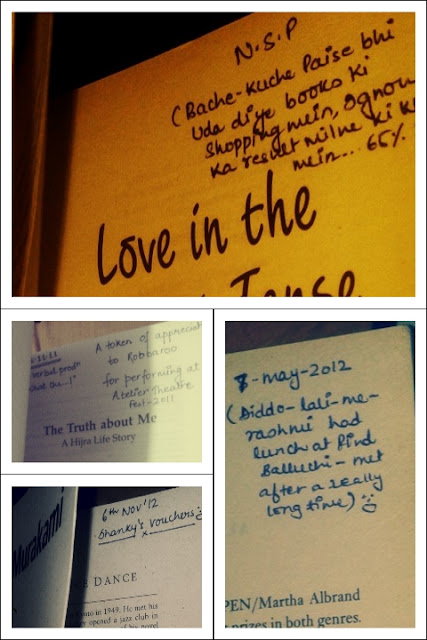 N.S.P
(Bache-kuche Paise bhi
Uda diye books ki
Shopping mein, Ignou
Ka result milne ki
mein... 65%
Love in the
Tense
A token of appreciat
to Robbaroo
for performing at
Atelier Theatre
Fest-2011
The Truth about Me
A Hijra Life Story
8-may-2012
(Diddo-lali-me-
rashmi had
lunch at Pind
Balluchi - met
after a really
long time)
PEN/Martha Albrand
prizes in both genres.
6th Nov'12
Shanky's vouchers
Murakami
DANCE
in 1949. He met his
opened a jazz club in
of his novel